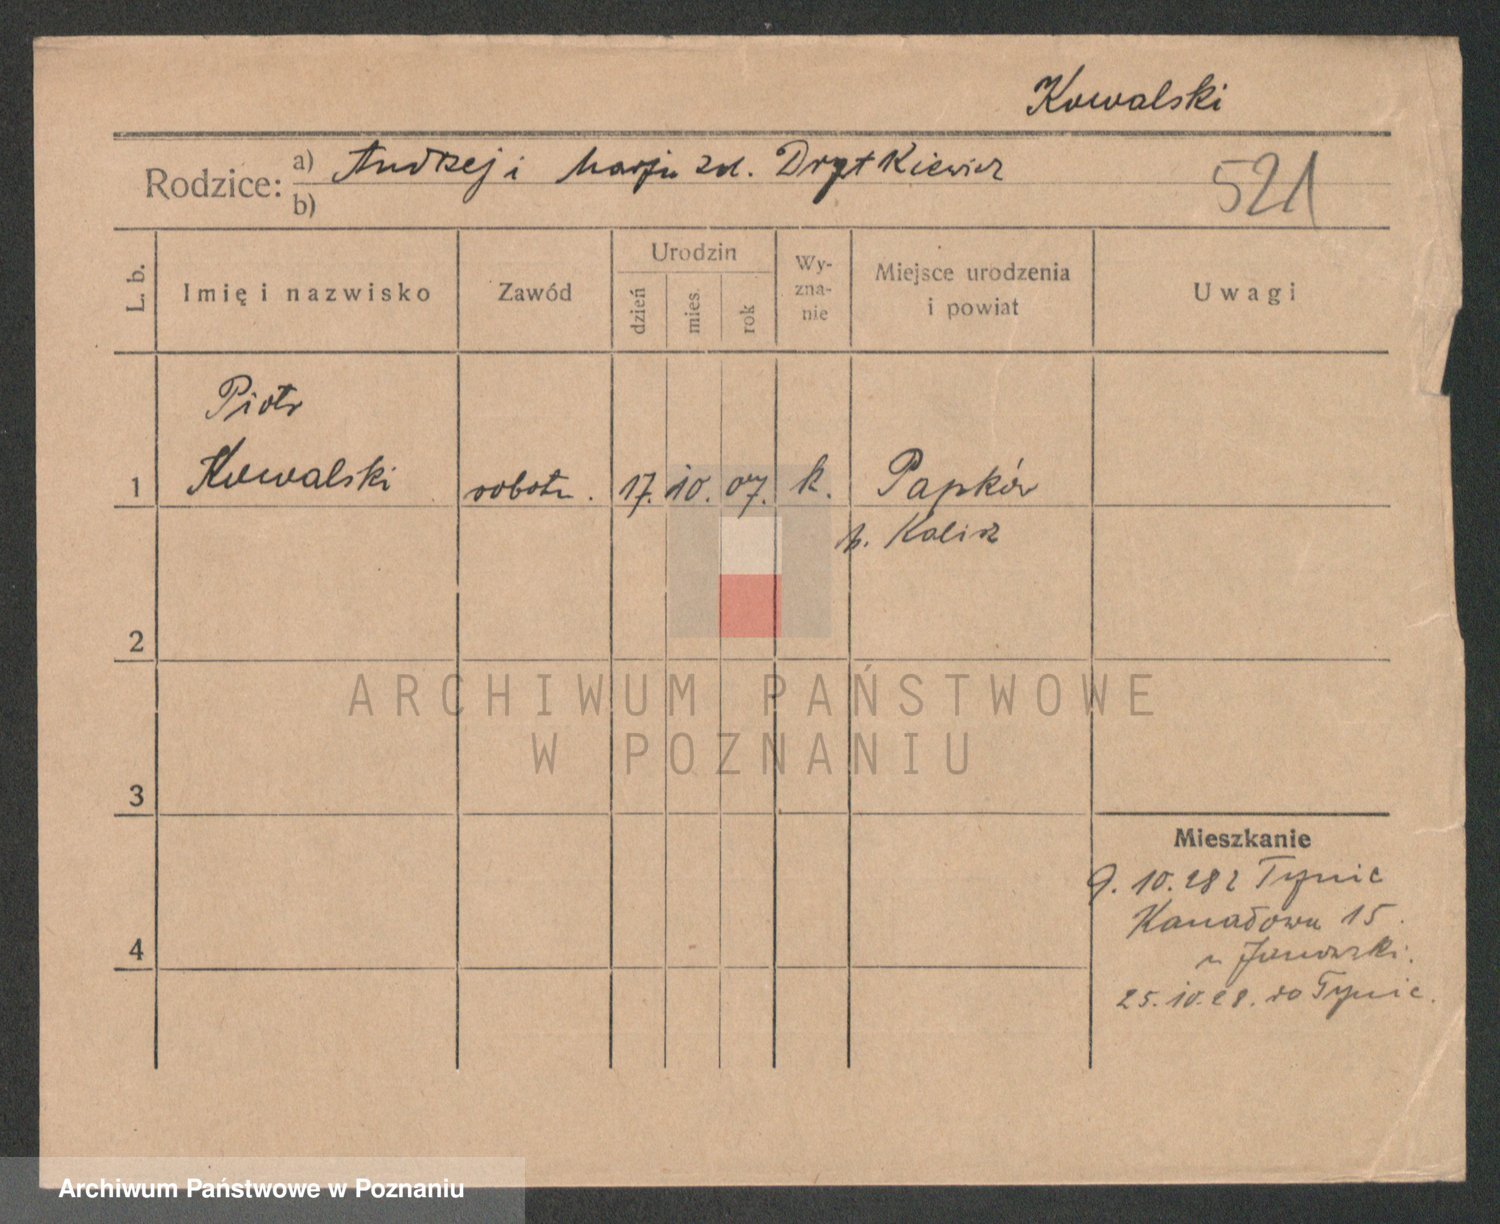 Kowalski
Rodzice: a) Andrzej i Marja zd. Drytkiewicz
b)
521
L. b.
Imię i nazwisko
Zawód
Urodzin
dzień
mies.
rok
Wy-
zna-
nie
Miejsce urodzenia
i powiat
Uwagi
Piotr
1 Kowalski robotn. 17. 10. 07. k. Papków
p. Kalisz
2
ARCHIWUM PAŃSTWOWE
W POZNANIU
3
Mieszkanie
9. 10. 28 z Tyniec
Kanałowa 15.
u Janowski.
4
25. 10. 28. do Tyniec.
Archiwum Państwowe w Poznaniu